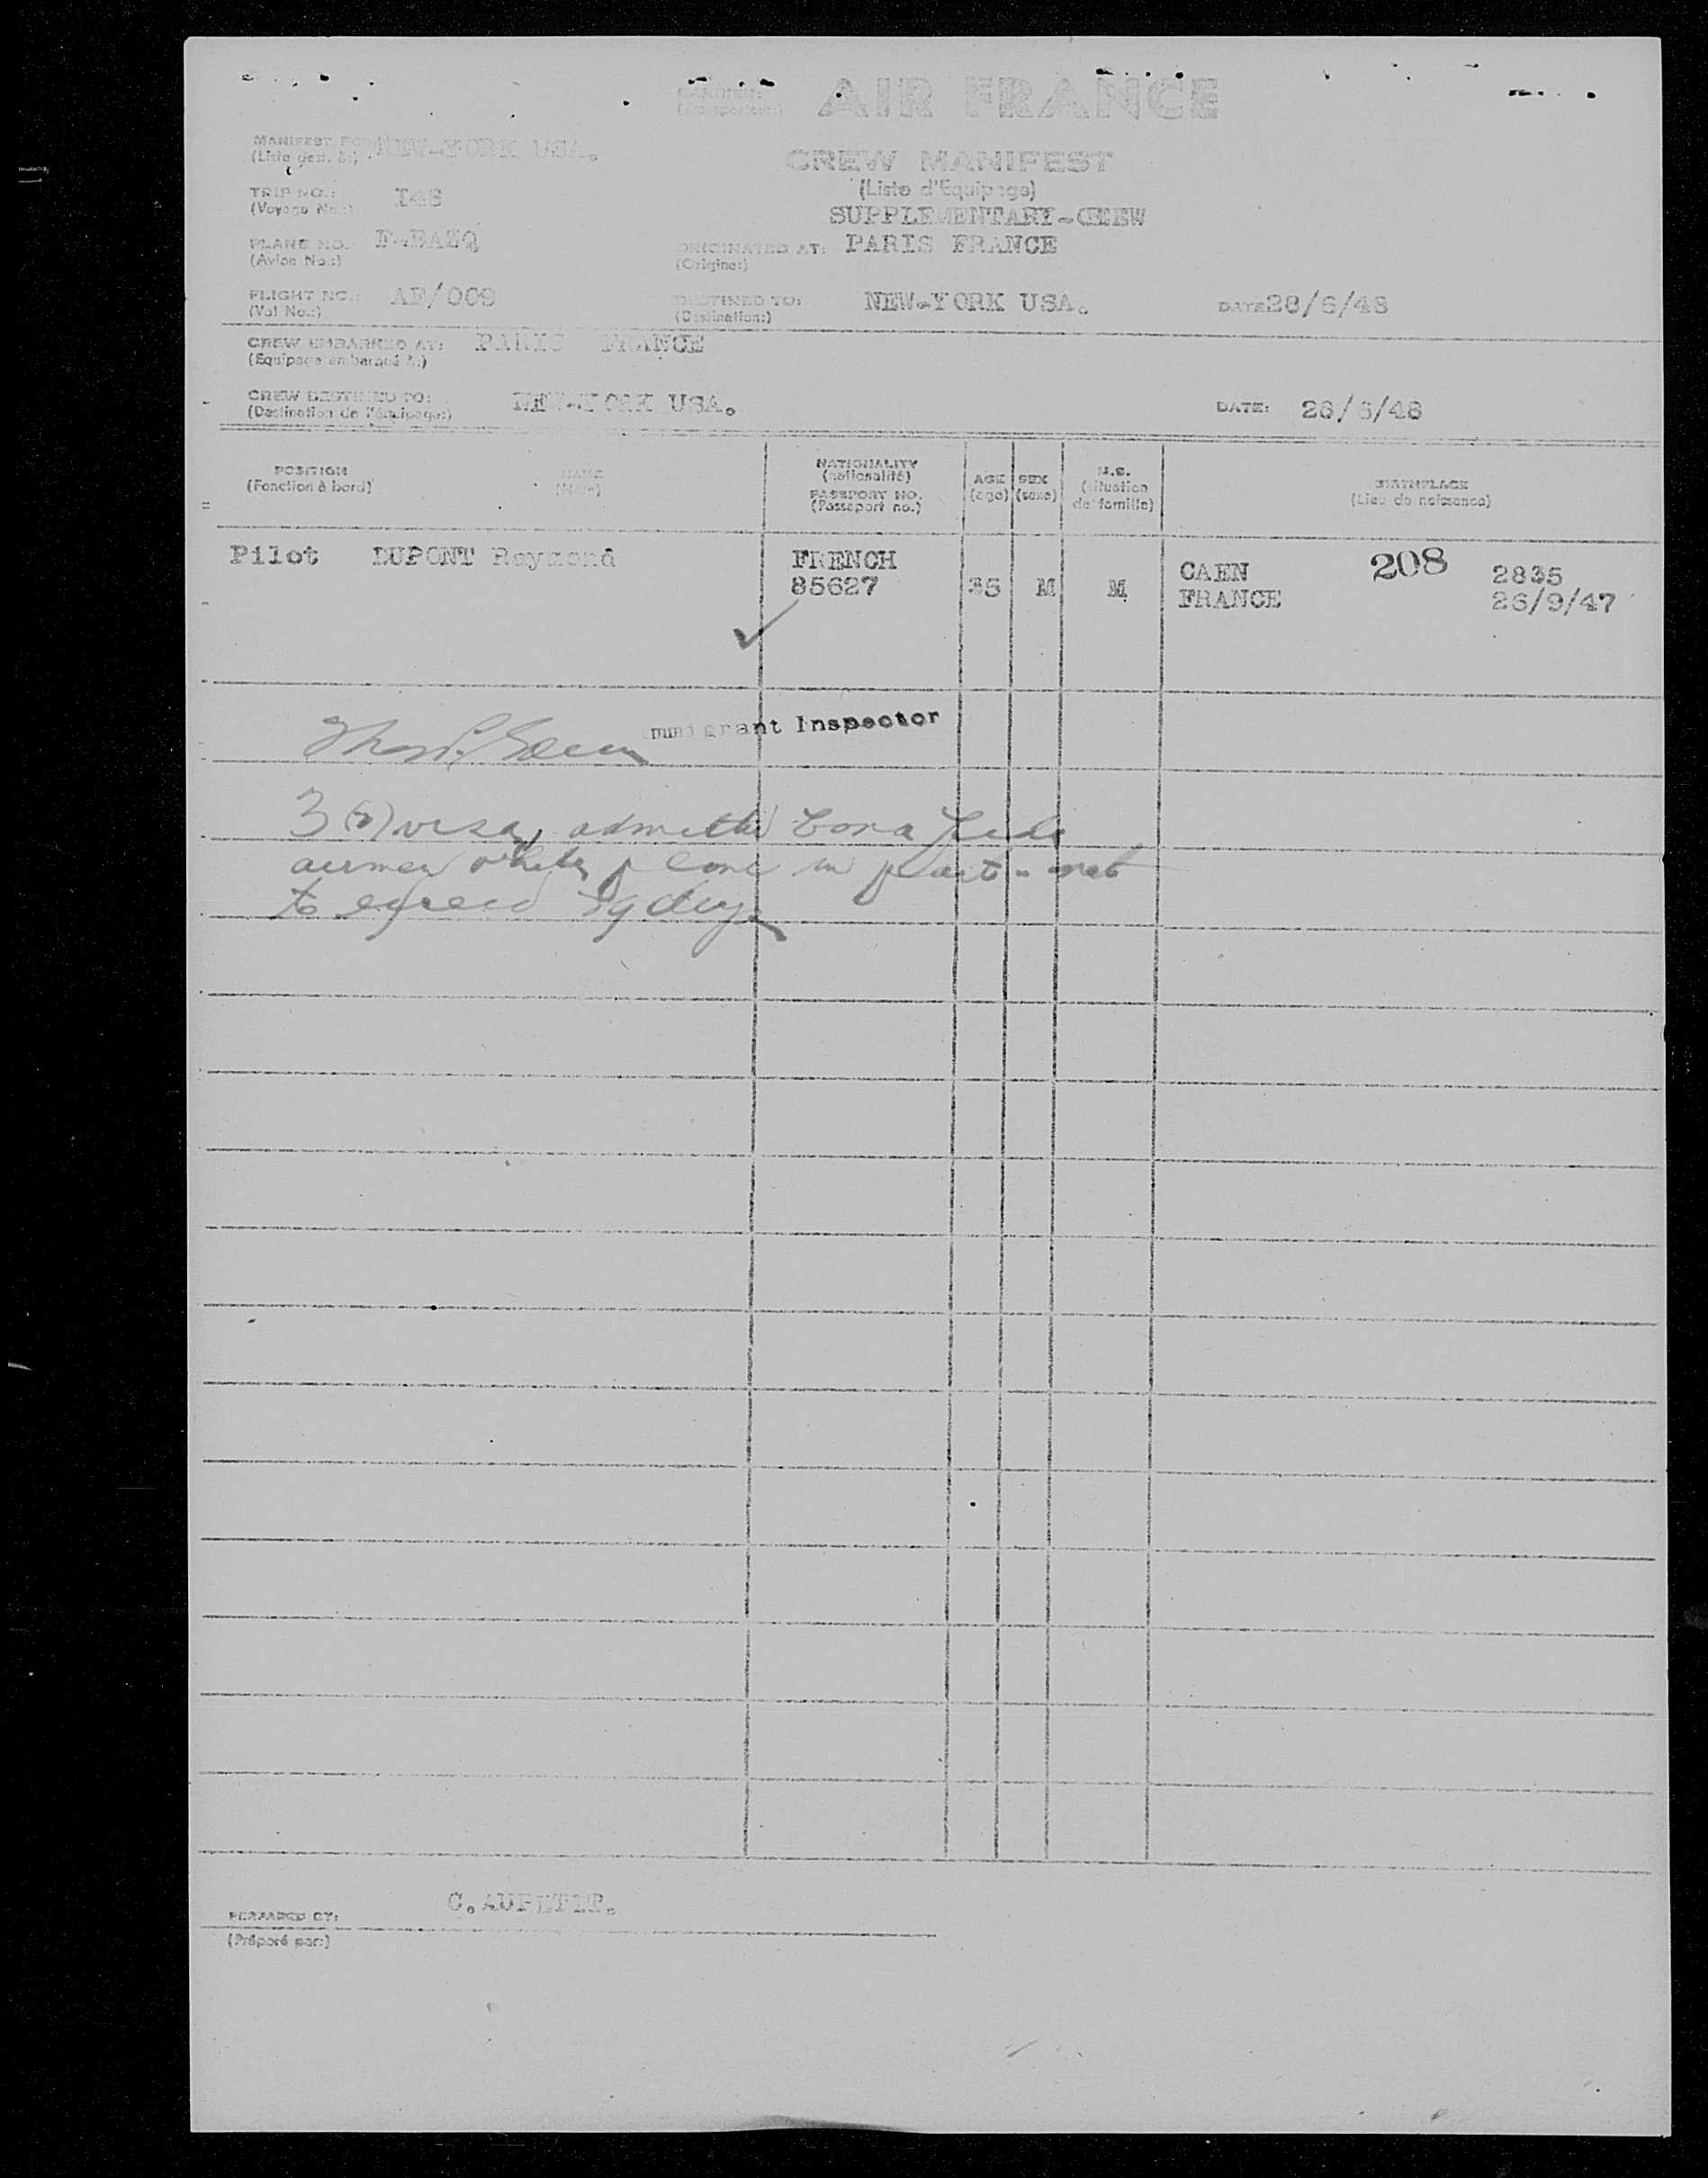 CARRIER: AIR FRANCE
(Transporteur:)
MANIFEST FOR: NEW-YORK USA.
(Liste dest. à:)
CREW MANIFEST
(Liste d'Equipage)
TRIP NO.: I48
(Voyage No.:)
SUPPLEMENTARY-CREW
PLANE NO.: F-BAZQ
(Avion No.:)
ORIGINATED AT: PARIS FRANCE
(Origine:)
FLIGHT NO.: AF/009
(Vol No.:)
DESTINED TO: NEW-YORK USA. DATE 28/6/48
(Destination:)
CREW EMBARKED AT: PARIS FRANCE
(Equipage embarqué à:)
CREW DESTINED TO: NEW-YORK USA. DATE: 28/6/48
(Destination de l'équipage:)
POSITION
(Fonction à bord)
NAME
(Nom)
NATIONALITY
(nationalité)
PASSPORT NO.
(Passeport no.)
AGE
(age)
SEX
(sexe)
M.S.
(situation
de famille)
BIRTHPLACE
(Lieu de naissance)
Pilot DUPONT Raymond FRENCH 35 M M CAEN 208 2835
85627 FRANCE 26/9/47
Immigrant Inspector
visa, admitted bona fide
airmen while plane in port - not
to exceed 29 days
PREPARED BY: C.AUPETIT.
(Préparé par:)